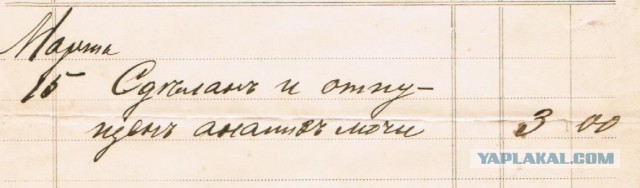 Марта
15 Сдѣланъ и отпу-
щенъ анализъ мочи 3 00
YAPLAKAL.COM